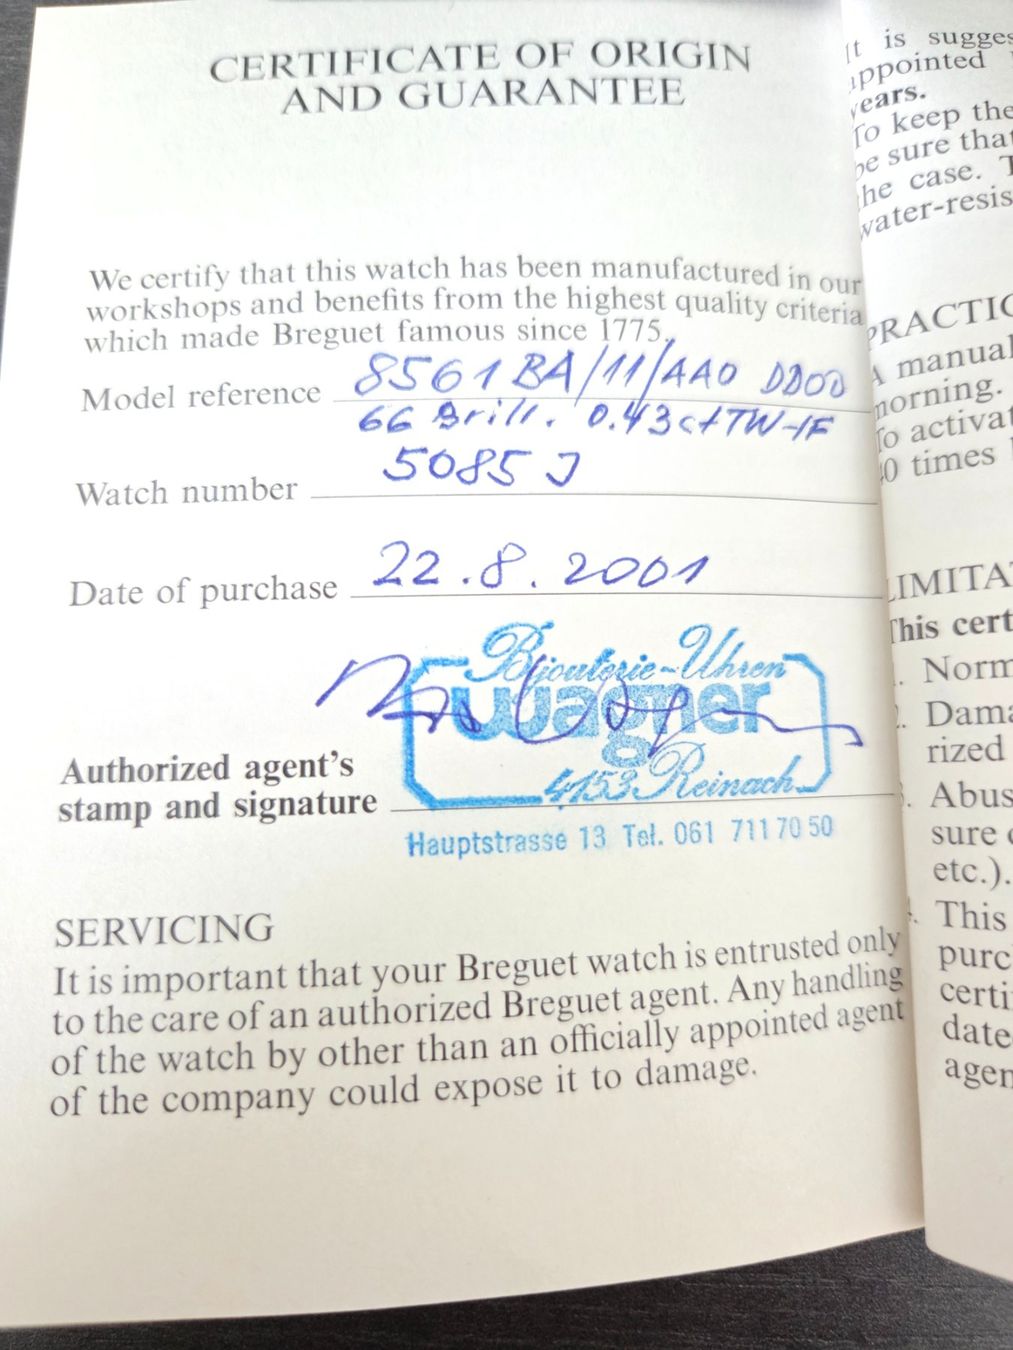 CERTIFICATE OF ORIGIN
AND GUARANTEE
We certify that this watch has been manufactured in our
workshops and benefits from the highest quality criteria
which made Breguet famous since 1775.
Model reference 8561 BA/11/AA0 DD00
66 Brill. 0.43 ct TW-IF
Watch number 5085 J
Date of purchase 22.8.2001
Bijouterie-Uhren
wagner
4153 Reinach
Authorized agent's
stamp and signature
Hauptstrasse 13 Tel. 061 711 70 50
SERVICING
It is important that your Breguet watch is entrusted only
to the care of an authorized Breguet agent. Any handling
of the watch by other than an officially appointed agent
of the company could expose it to damage.
It is sugges
appointed
years.
To keep the
be sure that
the case. T
water-resis
PRACTIC
A manual
morning.
To activat
times
LIMITA
This cert
Norm
2. Dama
rized
3. Abus
sure
etc.).
4. This
purc
certi
date
agen